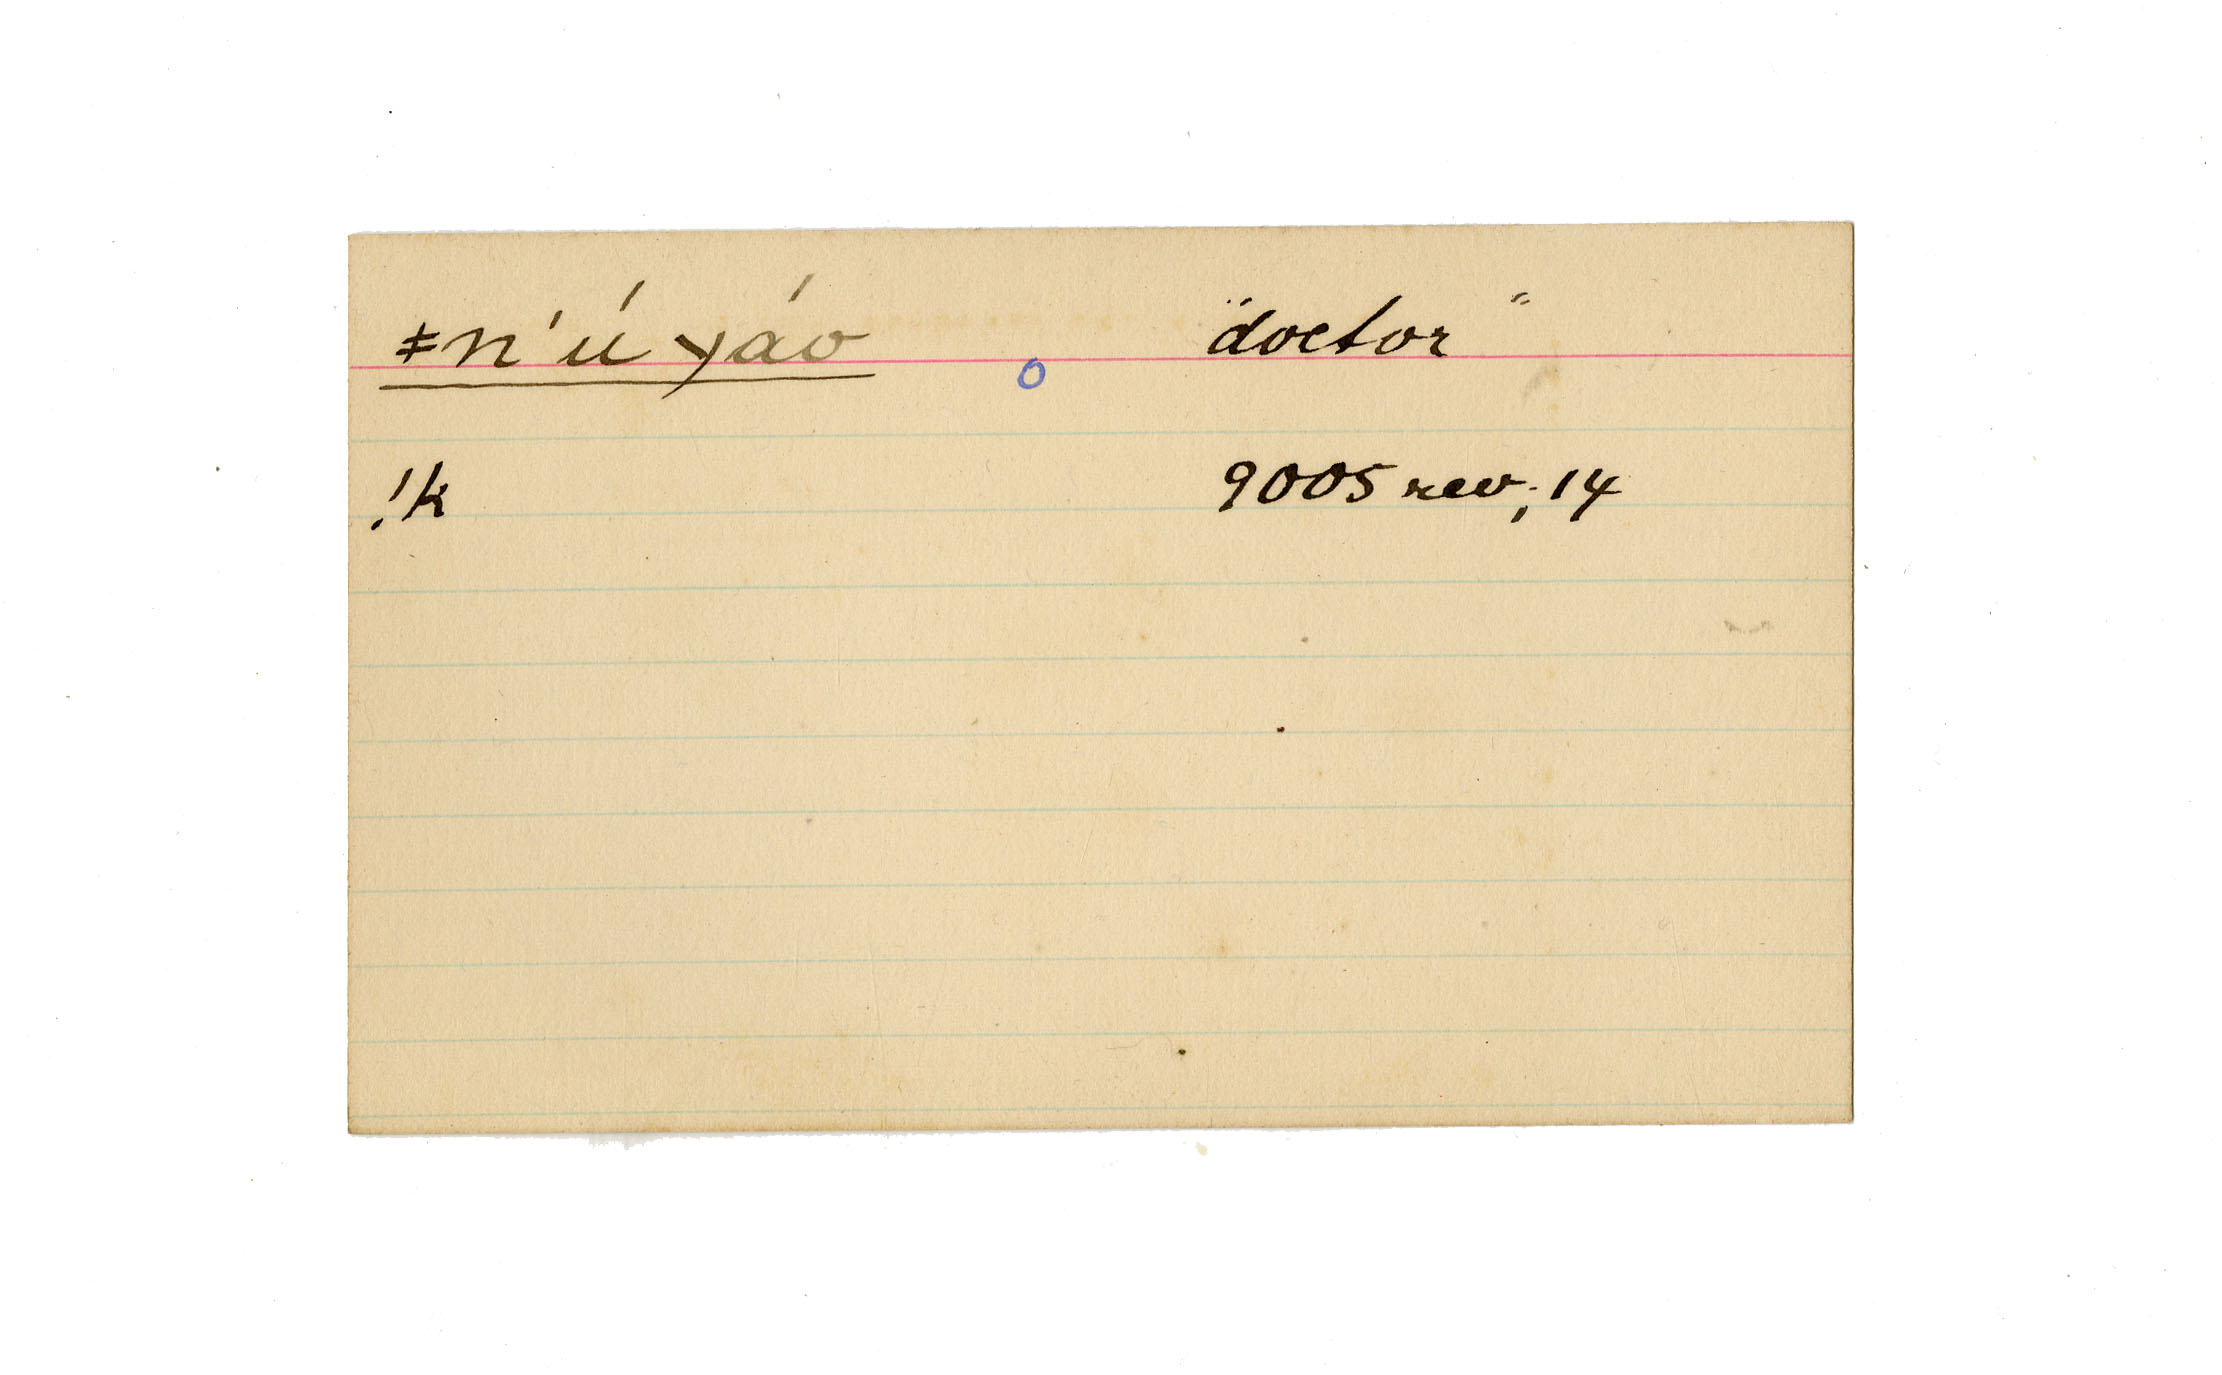 ǂn'ú yáo "doctor"
o
!k 9005 rev; 14